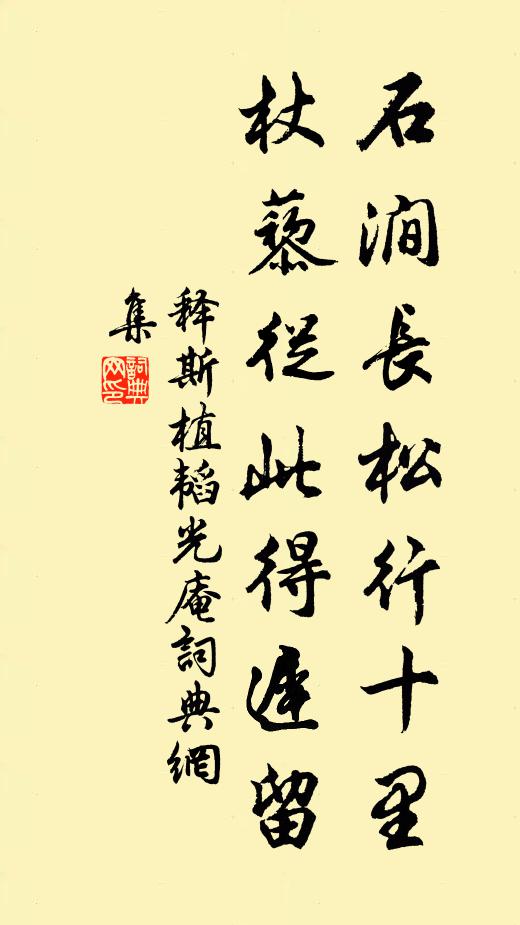 石澗長松行十里
杖藜從此得遲留
释斯植韬光庵詞典網
集
詞典网印